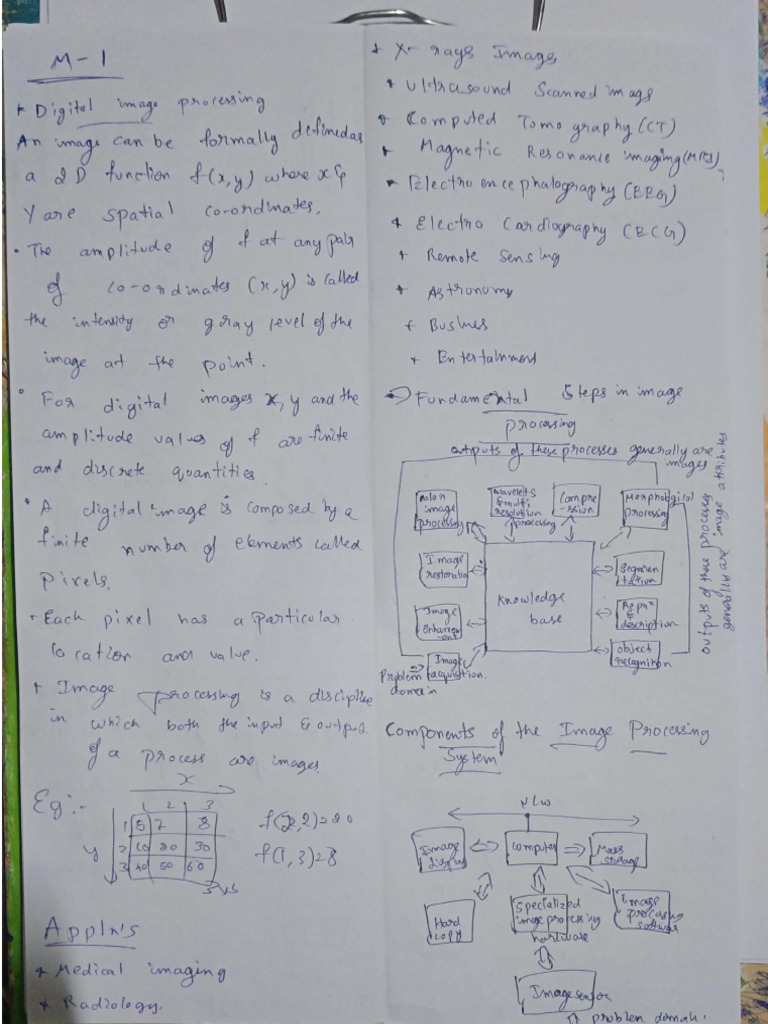 M-1
* Digital image processing
An image can be formally defined as
a 2D function f(x,y) where x &
y are spatial co-ordinates.
• The amplitude of f at any pair
of co-ordinates (x,y) is called
the intensity or gray level of the
image at the point.
• For digital images x, y and the
amplitude values of f are finite
and discrete quantities.
• A digital image is composed by a
finite number of elements called
pixels.
• Each pixel has a particular
location and value.
* Image processing is a discipline
in which both the input & output
of a process are images.
x
Eg:-
1 2 3
1 5 7 8
y 2 10 20 30
3 40 50 60
3x3
f(2,2)=20
f(1,3)=8
Appln's
* Medical imaging
* Radiology.
* X-rays Image
* Ultrasound Scanned imags
* Computed Tomography (CT)
* Magnetic Resonance imaging (MRI)
* Electro encephalography (EEG)
* Electro Cardiography (ECG)
* Remote Sensing
* Astronomy
* Busines
* Entertainment
→ Fundamental Steps in image
processing
outputs of these processes generally are
images
color
image
processing
wavelets
& multi
resolution
processing
Compre
-ssion
Morphological
processing
Image
restoration
Image
Enhancem
-ent
Image
acquisition.
Problem
domain
Knowledge
base
Segmen
tation
Repn
&
description
object
recognition
outputs of these process
generally are image attributes
Components of the Image Processing
System
N/W
Image
display
Computer
Mass
storage
Hard
copy
Specialized
image processing
hardware
Image
processing
software
Image sensor
problem domain.